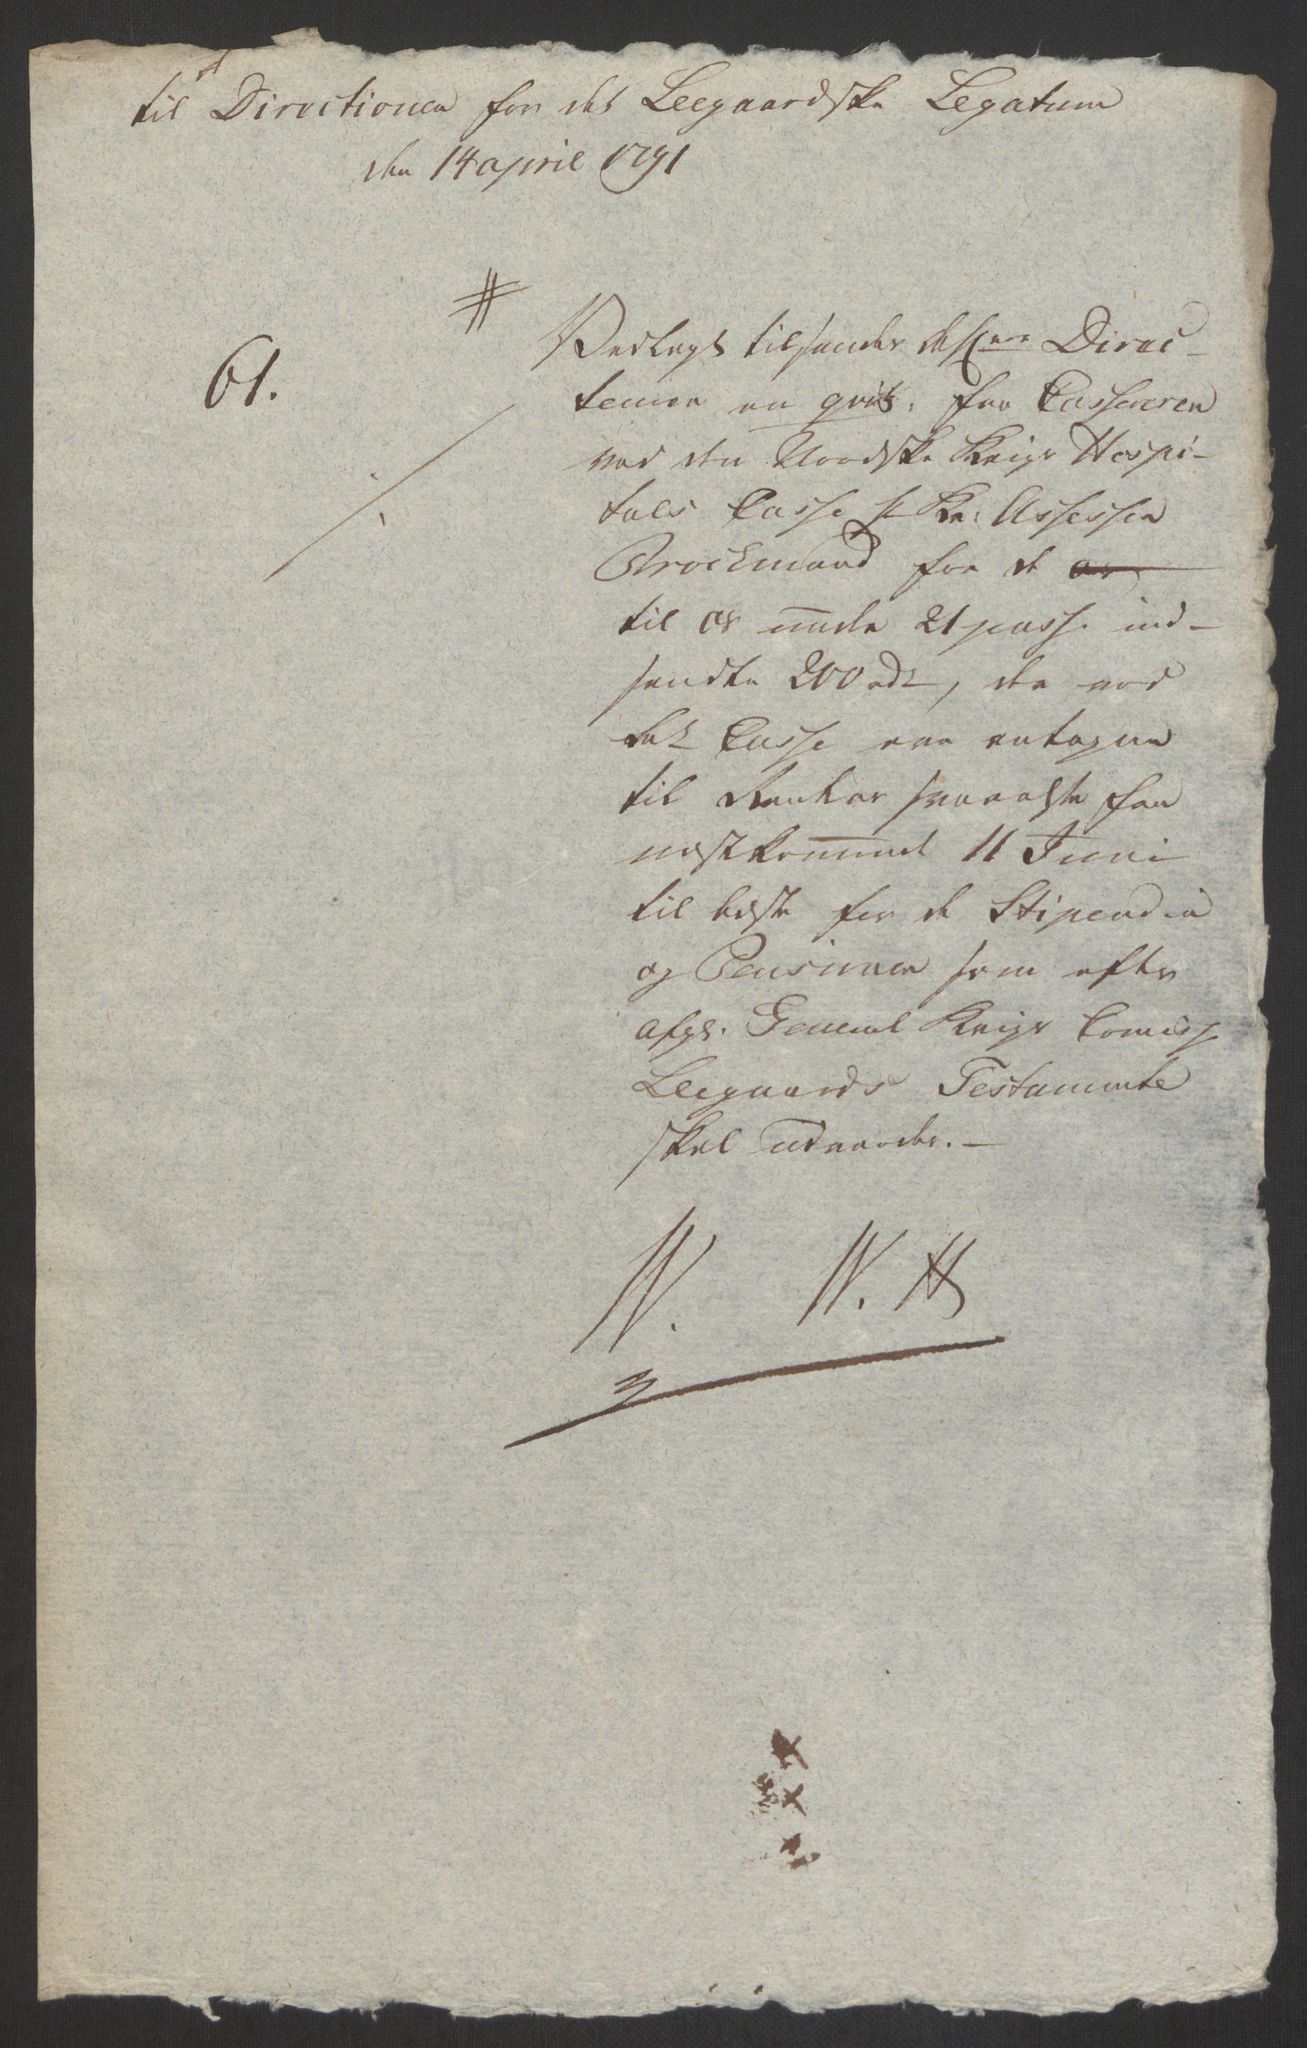 til Directionen for det Leegaardske Legatum
den 14 april 1791
#
61.
Vedlagt tilsender Direc-
tionen en qvit: fra Cassereren
ved den Nordske Krigs Hospi-
tals Casse Hr Kr: Assessor
Brockmand for de
til os under 21 passo ind-
sendte 200 rdr, der ved
det Casse ere antagne
til Renters svarelse fra
nestkommend 11 Juni
til beste for de Stipendia
og Pensioner som efter
afgl. General Krigs Comiss
Leegaards Testamente
skal uddeeles. —
W. W. H